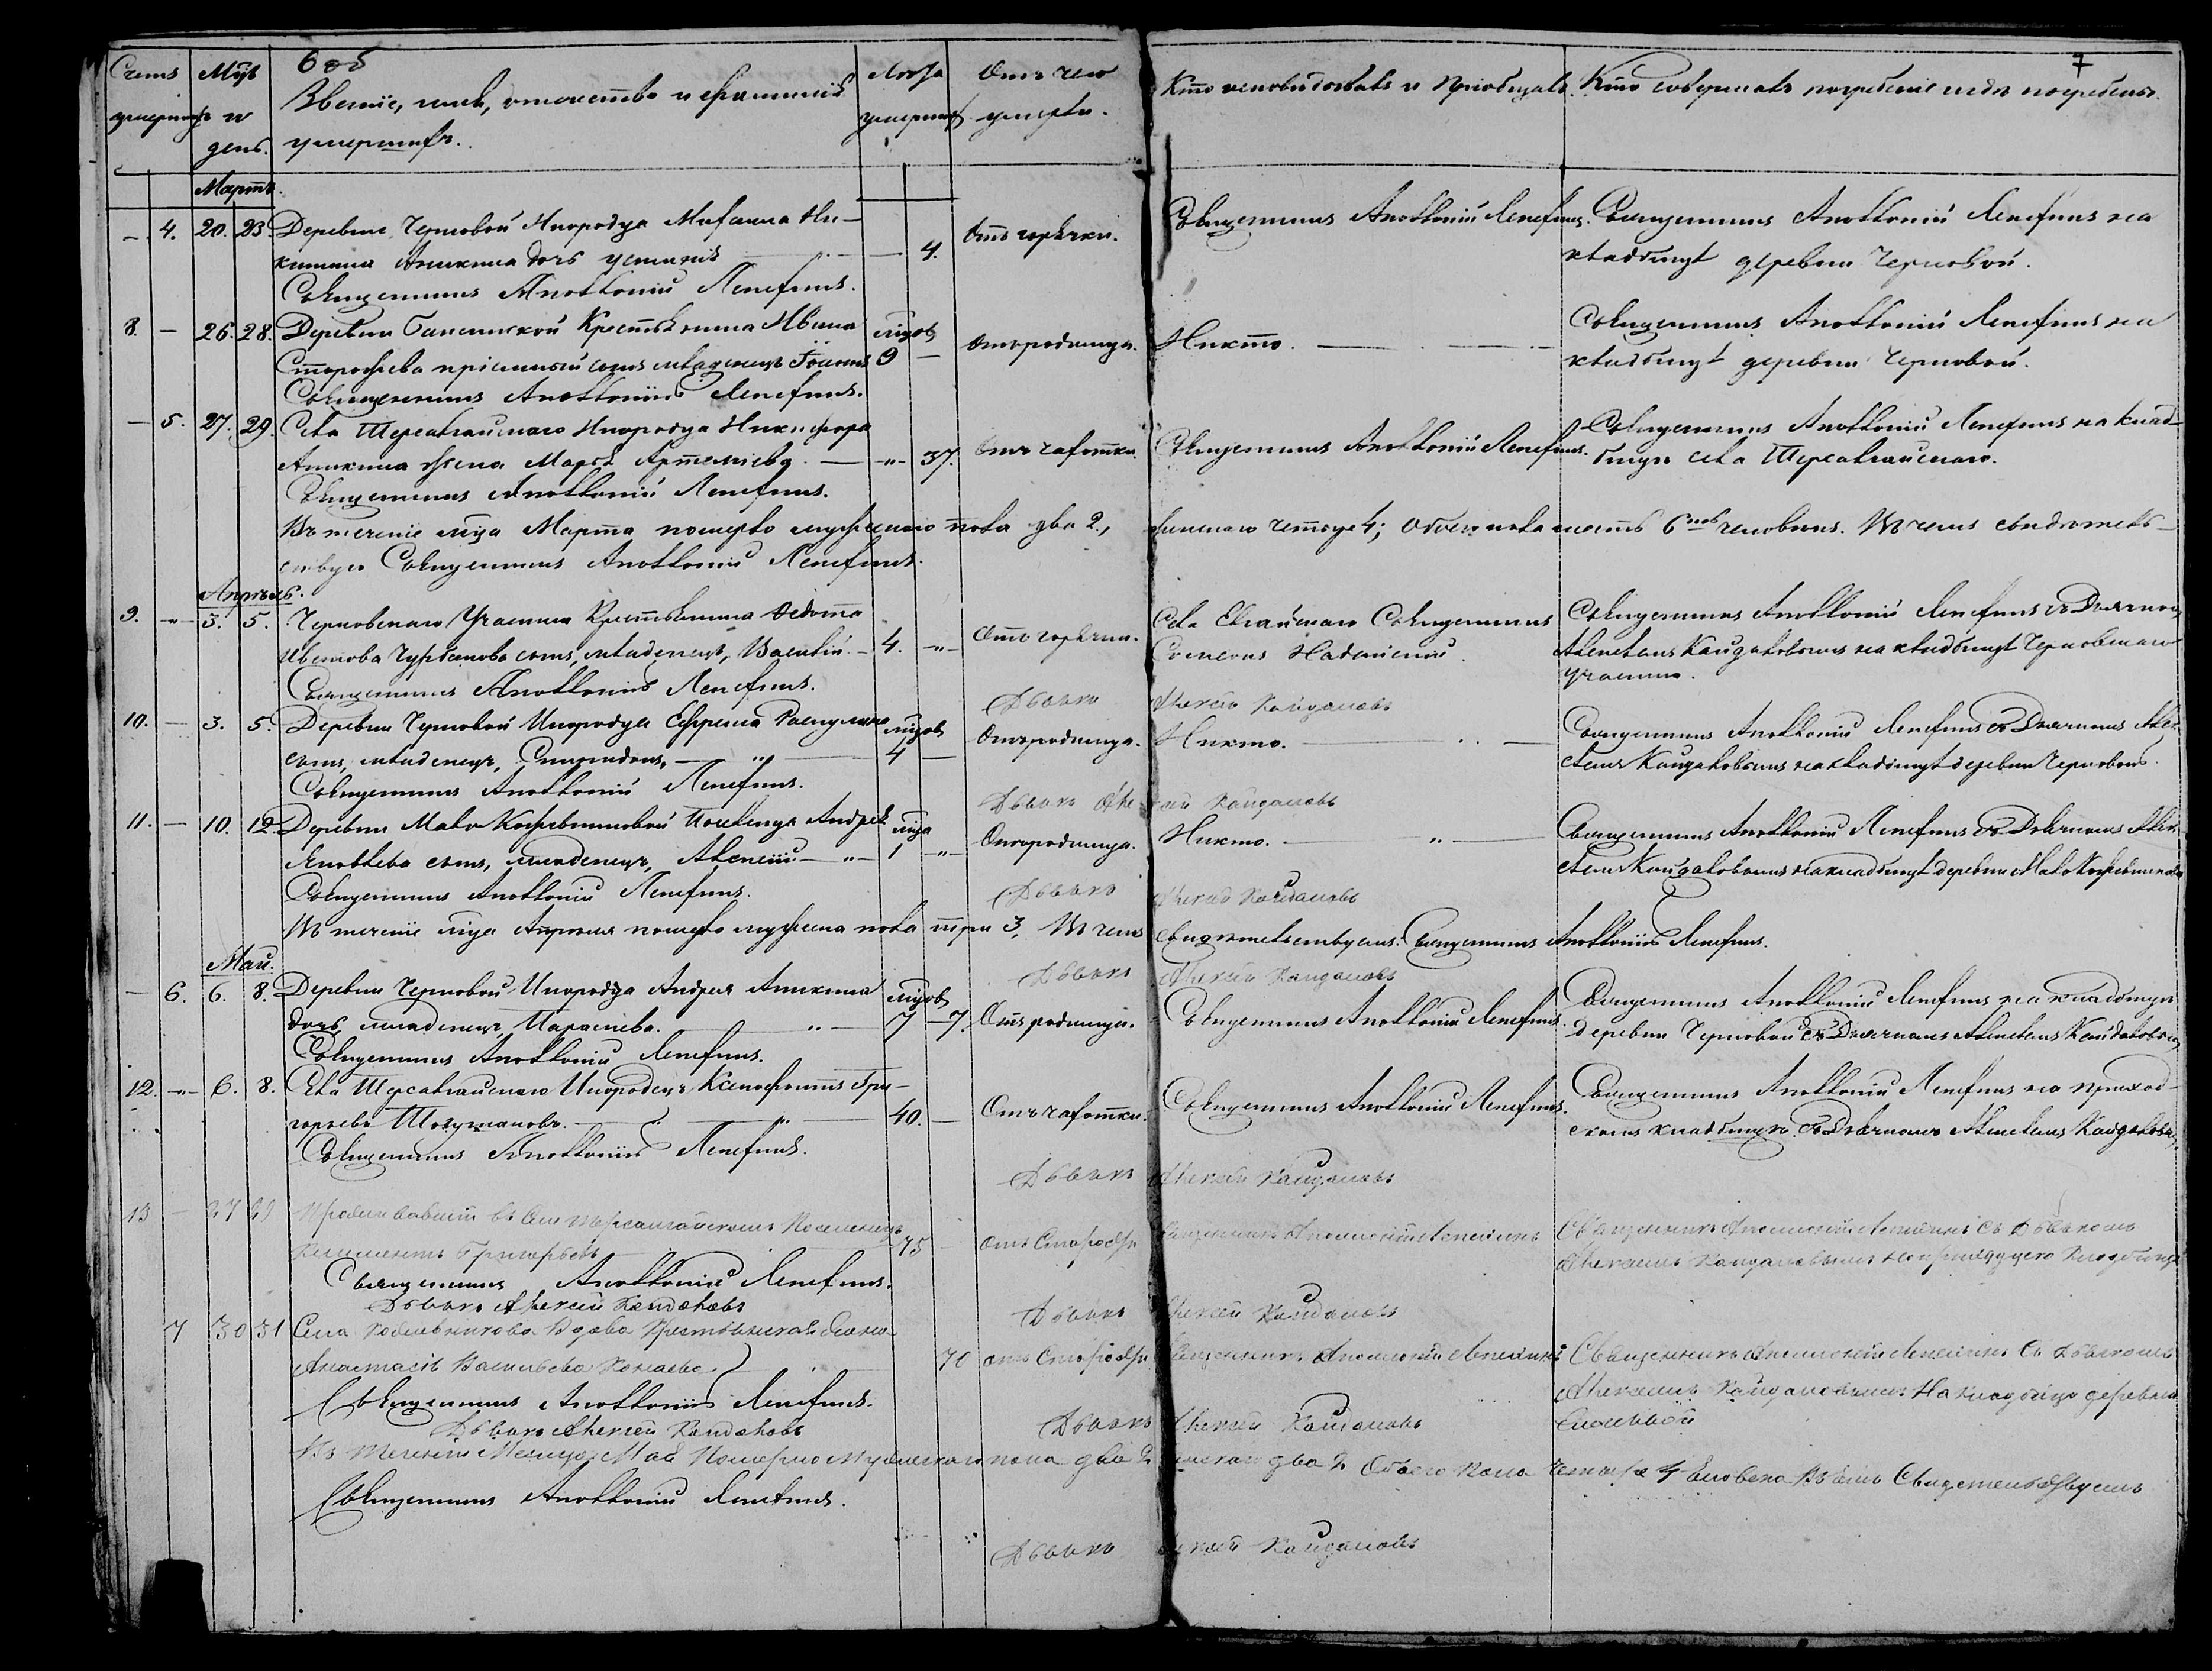 6 об
7
Счетъ умершихъ
Мцъ и день.
Званіе, имя, отчество и фамилія умершихъ.
Лѣта умершихъ
Отъ чего умерли.
Кто исповѣдовалъ и пріобщалъ.
Кто совершалъ погребеніе и гдѣ погребены.
Мартъ.
4. 20. 23. Деревни Черновой Инородца Михаила Ни-
китина Аникина дочь 4. Отъ горячки. Священникъ Аполлоній Лепехинъ. Священникъ Аполлоній Лепехинъ на
кладбищѣ деревни Черновой.
Священникъ Аполлоній Лепехинъ.
8. — 26. 28. Деревни Крестьянина Ивана мцовъ
пріемный сынъ младенецъ 9 — Отъ родимца. Никто. Священникъ Аполлоній Лепехинъ на
кладбищѣ деревни Черновой.
Священникъ Аполлоній Лепехинъ.
— 5. 27. 29. Села Инородца Никифора
Аникина жена Марѳа Артемьева — 37. Отъ чахотки. Священникъ Аполлоній Лепехинъ. Священникъ Аполлоній Лепехинъ на клад-
бищѣ села
Священникъ Аполлоній Лепехинъ.
Въ теченіе мца Марта померло мужескаго пола два 2, женскаго четыре 4; Обоего пола шесть 6 человѣкъ. Въ чемъ свидѣтель-
ствую Священникъ Аполлоній Лепехинъ.
Апрѣль.
9. — 3. 5. Черновскаго Участка Крестьянина Ѳедота
сынъ, младенецъ, Василій. — 4. — Отъ горячки. Села Священникъ Священникъ Аполлоній Лепехинъ съ Дьячкомъ
Алексѣемъ Кайдаловымъ на кладбищѣ Черновскаго
участка.
Священникъ Аполлоній Лепехинъ.
Дьячекъ Алексѣй Кайдаловъ
10. — 3. 5. Деревни Черновой Инородца Ефрема мцовъ
сынъ, младенецъ, Спиридонъ, — 4 — Отъ родимца. Никто. Священникъ Аполлоній Лепехинъ съ Дьячкомъ Алек-
сѣемъ Кайдаловымъ на кладбищѣ деревни Черновой.
Священникъ Аполлоній Лепехинъ.
Дьячекъ Алексѣй Кайдаловъ
11. — 10. 12. Деревни Мало Кожевниковой Поселенца Андрея мца
Яковлева сынъ, младенецъ, Алексій — 1 — Отъ родимца. Никто. Священникъ Аполлоній Лепехинъ съ Дьячкомъ Алек-
сѣемъ Кайдаловымъ на кладбищѣ деревни Мало Кожевниковой
Священникъ Аполлоній Лепехинъ.
Дьячекъ Алексѣй Кайдаловъ
Въ теченіе мца Апрѣля померло мужеска пола три 3. Въ чемъ свидѣтельствуемъ: Священникъ Аполлоній Лепехинъ.
Дьячекъ Алексѣй Кайдаловъ
Май.
— 6. 6. 8. Деревни Черновой Инородца Андрея Аникина мцовъ
дочь, младенецъ, — 7 — 7. Отъ родимца. Священникъ Аполлоній Лепехинъ. Священникъ Аполлоній Лепехинъ на кладбищѣ
деревни Черновой съ Дьячкомъ Алексѣемъ Кайдаловымъ
Священникъ Аполлоній Лепехинъ.
12. — 6. 8. Села Инородецъ Ксенофонтъ Гри-
горьевъ — 40. — Отъ чахотки. Священникъ Аполлоній Лепехинъ. Священникъ Аполлоній Лепехинъ на приход-
скомъ кладбищѣ съ Дьячкомъ Алексѣемъ Кайдаловымъ.
Священникъ Аполлоній Лепехинъ.
Дьячекъ Алексѣй Кайдаловъ
13 — 27 29 Проживавшій въ селѣ Поселенецъ
Климентъ Григорьевъ 75 отъ Старости Священникъ Аполлоній Лепехинъ Священникъ Аполлоній Лепехинъ съ Дьячкомъ
Алексѣемъ Кайдаловымъ
Священникъ Аполлоній Лепехинъ.
Дьячекъ Алексѣй Кайдаловъ
Дьячекъ Алексѣй Кайдаловъ
7 30 31 Села Кожевникова Вдова Крестьянская жена
Анастасія Васильева 70 отъ Старости Священникъ Аполлоній Лепехинъ Священникъ Аполлоній Лепехинъ съ Дьячкомъ
Алексѣемъ Кайдаловымъ на кладбищѣ деревни
Священникъ Аполлоній Лепехинъ.
Дьячекъ Алексѣй Кайдаловъ
Дьячекъ Алексѣй Кайдаловъ
Въ теченіи Месяца Мая Померло Мужескаго пола два 2 женскаго два 2 Обоего Пола Четыре 4 Человека Въ чемъ Свидетельствуемъ
Священникъ Аполлоній Лепехинъ.
Дьячекъ Алексѣй Кайдаловъ